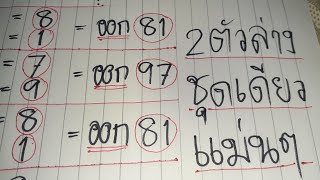 = 8
1 = ออก 81
= 7
= 9 = ออก 97
= 8
1 = ออก 81
2 ตัวล่าง
ชุดเดียว
แม่นๆ